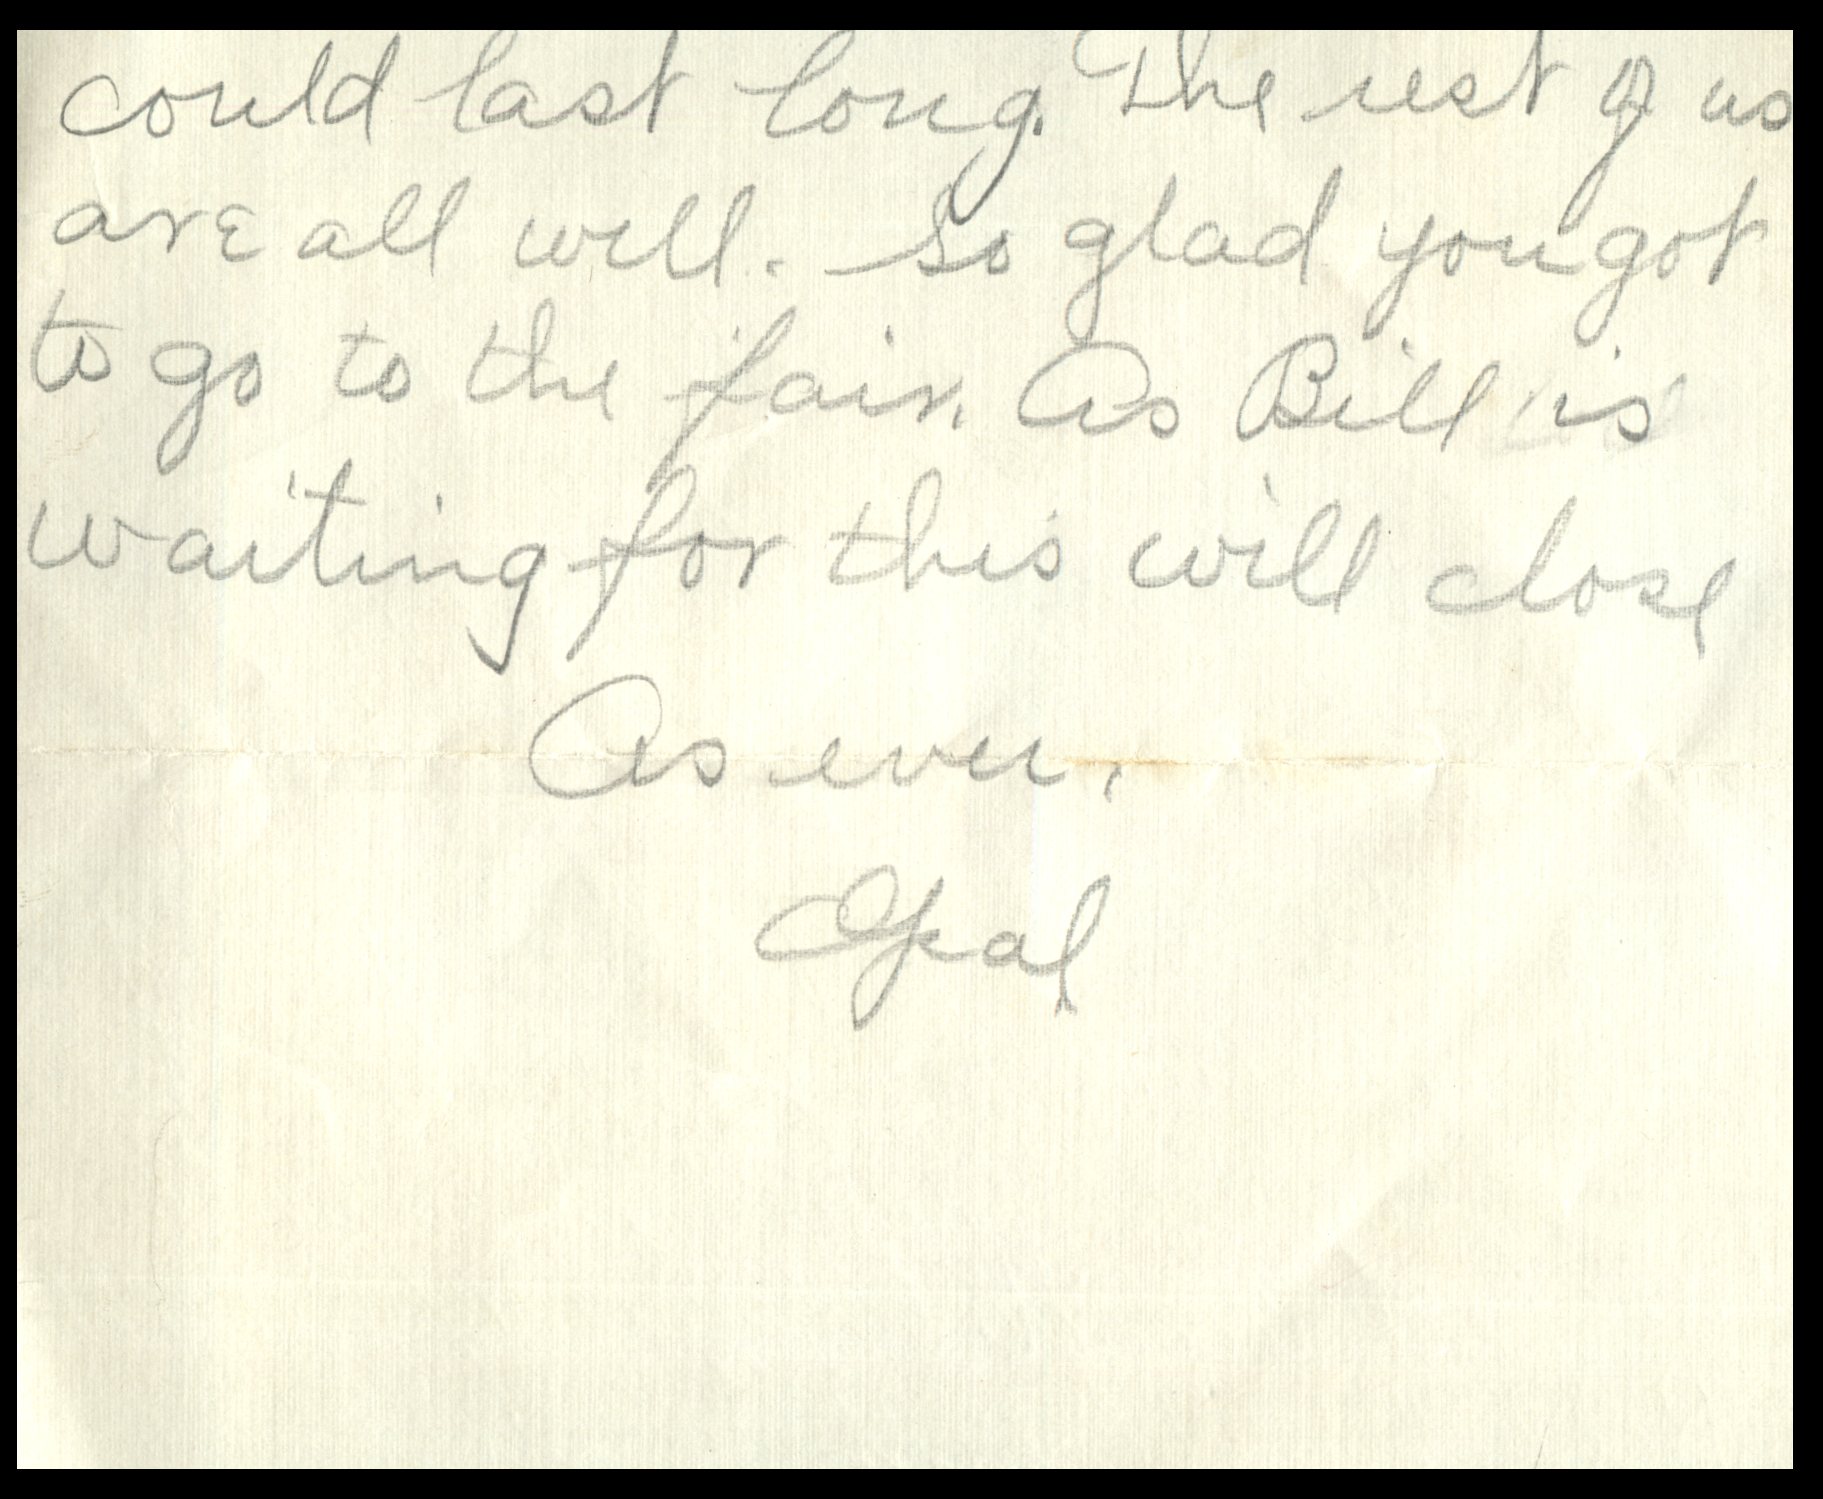 could last long. The rest of us
are all well. So glad you got
to go to the fair. As Bill is
waiting for this will close
As ever,
Opal